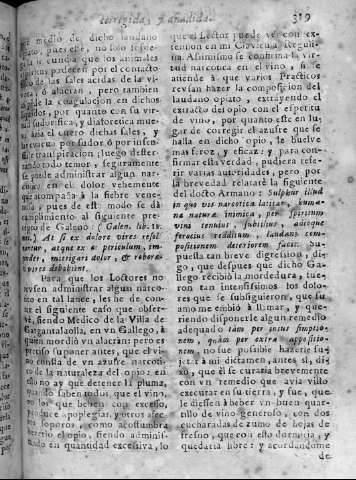 corregida, y añadida. 319
por medio de dicho laudano
opiato, pues este, no solo resuelve
la cunija que los animales
padecen por el contacto
de las sales acidas de la vi-
ò alacran, pero tambien
de la coagulacion en dichos
por quanto en su vir-
sudorifica, y diaforetica mue-
el cuero dichas sales, y
ò por sudor, ò por insen-
transpiracion; luego dester-
rando todo temor, seguramente
se puede administrar algun nar-
en el dolor vehemente
que acompaña à la fiebre vene-
pues de est: modo se dà
cumplimiento al siguiente pre-
cepto de Galeno: ( Galen. lib. 12.
m.) At si ex dolore vires resol
atque ex æ periculum, im-
mitigari dolor, & robora-
vires debebunt.
Para que los Lectores no
rvsen administrar algun narco-
en tal lance, les he de con-
el siguiente caso que obser-
siendo Medico de la Villa de
Gargantalaolla, en vn Gallego, à
quien mordiò vn alacràn: pero es
preciso suponer antes, que el vi-
no consta de vn azufre narcoti-
de la naturaleza del opio: en
no ay que detener la pluma,
quando saben todos, que el vino,
los que beben con excesso,
produce apoplegias, y otros afec-
soporosos, como acostumbra
el opio, siendo adminis-
en quantidad excessiva, lo
que el Lector puede vèr con ex-
tension en mi Clavicula Reguli-
na. Assimismo se confirma la vir-
tud narcotica en el vino, si se
atiende à que varios Practicos
revsan hazer la composicion del
laudano opiato, extrayendo el
extracto del opio con el espiritu
de vino, por quanto este en lu-
gar de corregir el azufre que se
halla en dicho opio, le buelve
mas feroz, y eficaz: y para con-
firmar esta verdad, pudiera refe-
rir varias autoridades, pero por
la brevedad relatarè la siguiente
del docto Armano: Sulphur illud
in quo vis narcotica latitat, huma-
na naturæ inimica, per spiritum
vini tenuius, subtilius, adeoque
ferocius redditum, laudani com-
positionem deteriorem facit. Su-
puesta tan breve digression, di-
go, que despues que dicho Ga-
llego recibiò la mordedura, fue-
ron tan intensissimos los dolo-
res que se subsiguieron, que su
amo me embiò à llamar, y que-
riendo disponerle algun remedio
adequado tam per intus sumptio-
nem, quàm per extra appositio-
nem, no fue possible hazerle su-
jetar à mi dictamen, antes sì, di-
xo, que èl se curaria brevemente
con vn remedio que avia visto
executar en su tierra, y fue, que
le diessen à beber vn buen quar-
tillo de vino generoso, con dos
cucharadas de zumo de hojas de
fresno, que con esto dormiria, y
quedaria libre: y acordandome
de